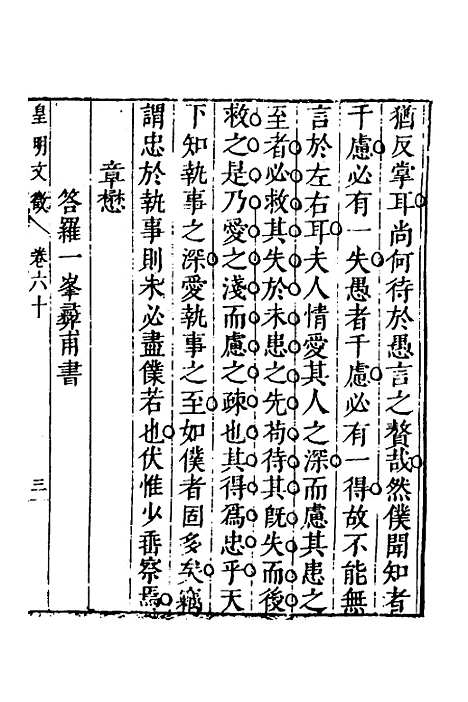 猶反掌耳尚何待於愚言之贅哉然僕聞知者
千慮必有一失愚者千慮必有一得故不能無
言於左右耳夫人情愛其人之深而慮其患之
至者必救其失於未患之先苟待其旣失而後
救之是乃愛之淺而慮之疎也其得爲忠乎天
下知執事之深愛執事之至如僕者固多矣竊
謂忠於執事則未必盡僕若也伏惟少垂察焉
章懋
答羅一峯彛甫書
皇明文徵
卷六十
三